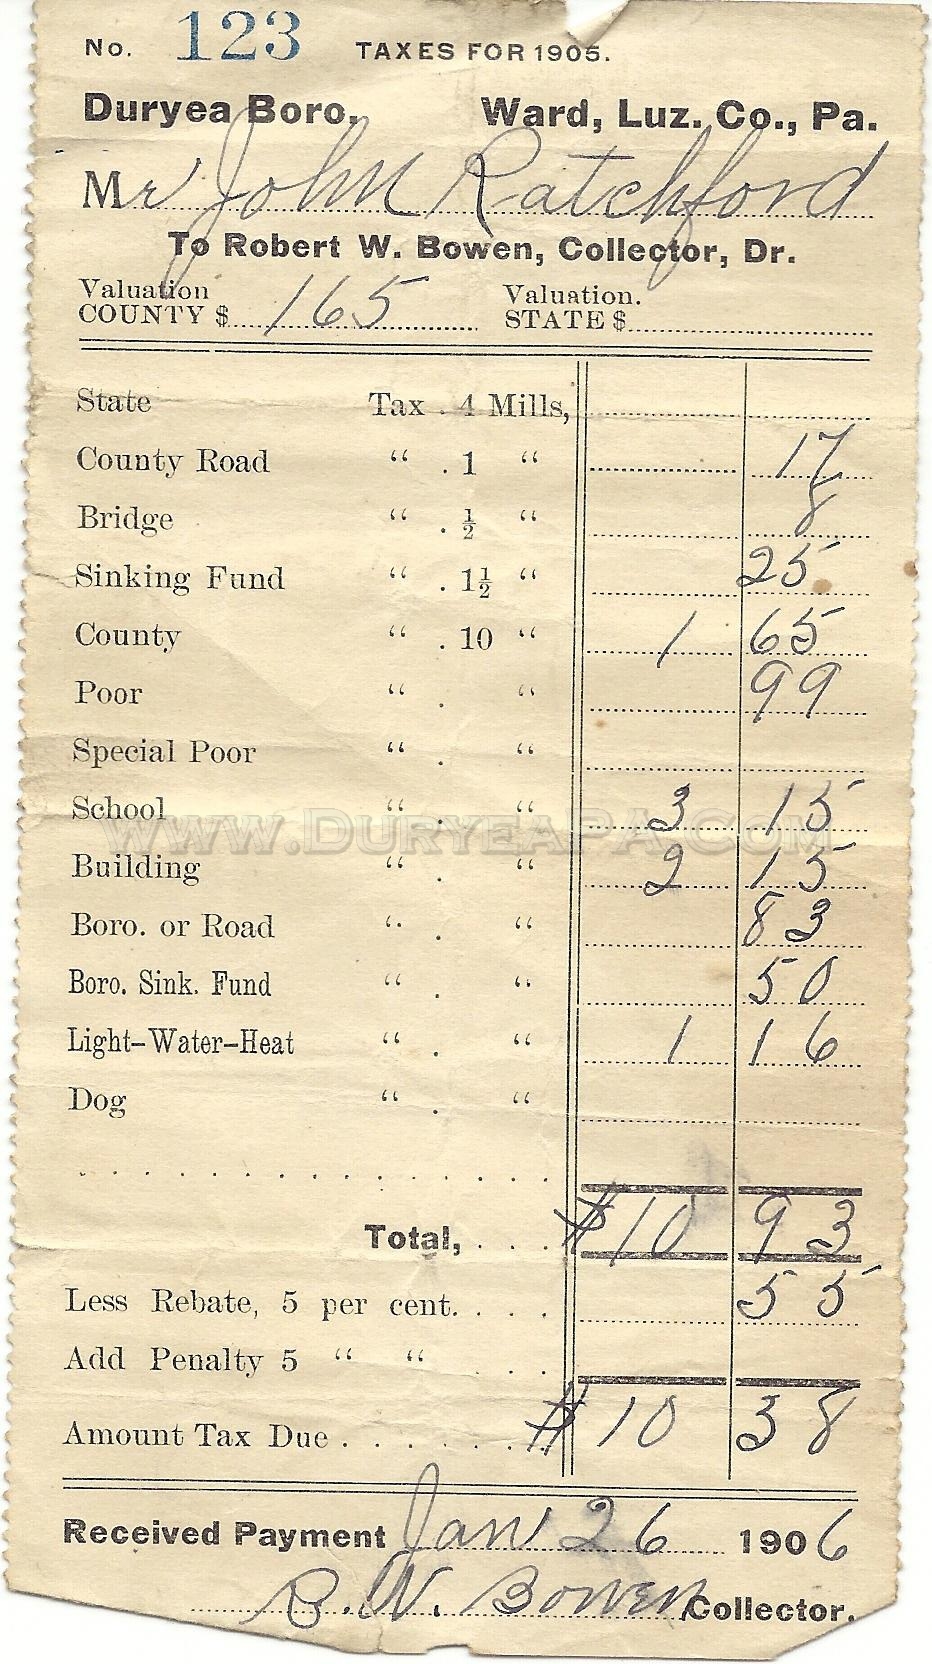 No. 123 TAXES FOR 1905.
Duryea Boro, Ward, Luz. Co., Pa.
Mr John Ratchford
To Robert W. Bowen, Collector, Dr.
Valuation COUNTY $ 165 Valuation. STATE $
State Tax . 4 Mills,
County Road " . 1 " 17
Bridge " . ½ " 8
Sinking Fund " . 1½ " 25
County " . 10 " 1 65
Poor " . " 99
Special Poor " . "
School " . " 3 15
www.DuryeaPA.com
Building " . " 2 15
Boro. or Road " . " 83
Boro. Sink. Fund " . " 50
Light-Water-Heat " . " 1 16
Dog " . "
Total, . . . $ 10 93
Less Rebate, 5 per cent. . . . 55
Add Penalty 5 " " . . .
Amount Tax Due . . . . . . . $ 10 38
Received Payment Jan 26 1906
R. W. Bowen, Collector.